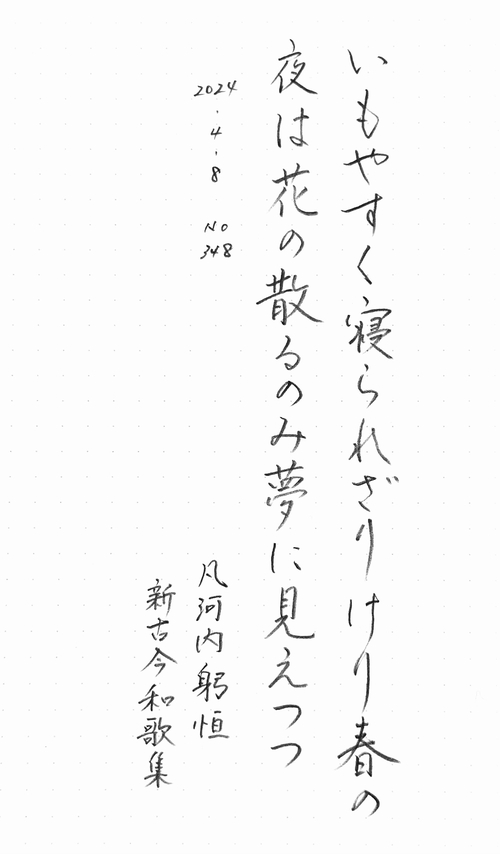 いもやすく寝られざりけり春の
夜は花の散るのみ夢に見えつつ
2024・4・8 No348
凡河内躬恒
新古今和歌集